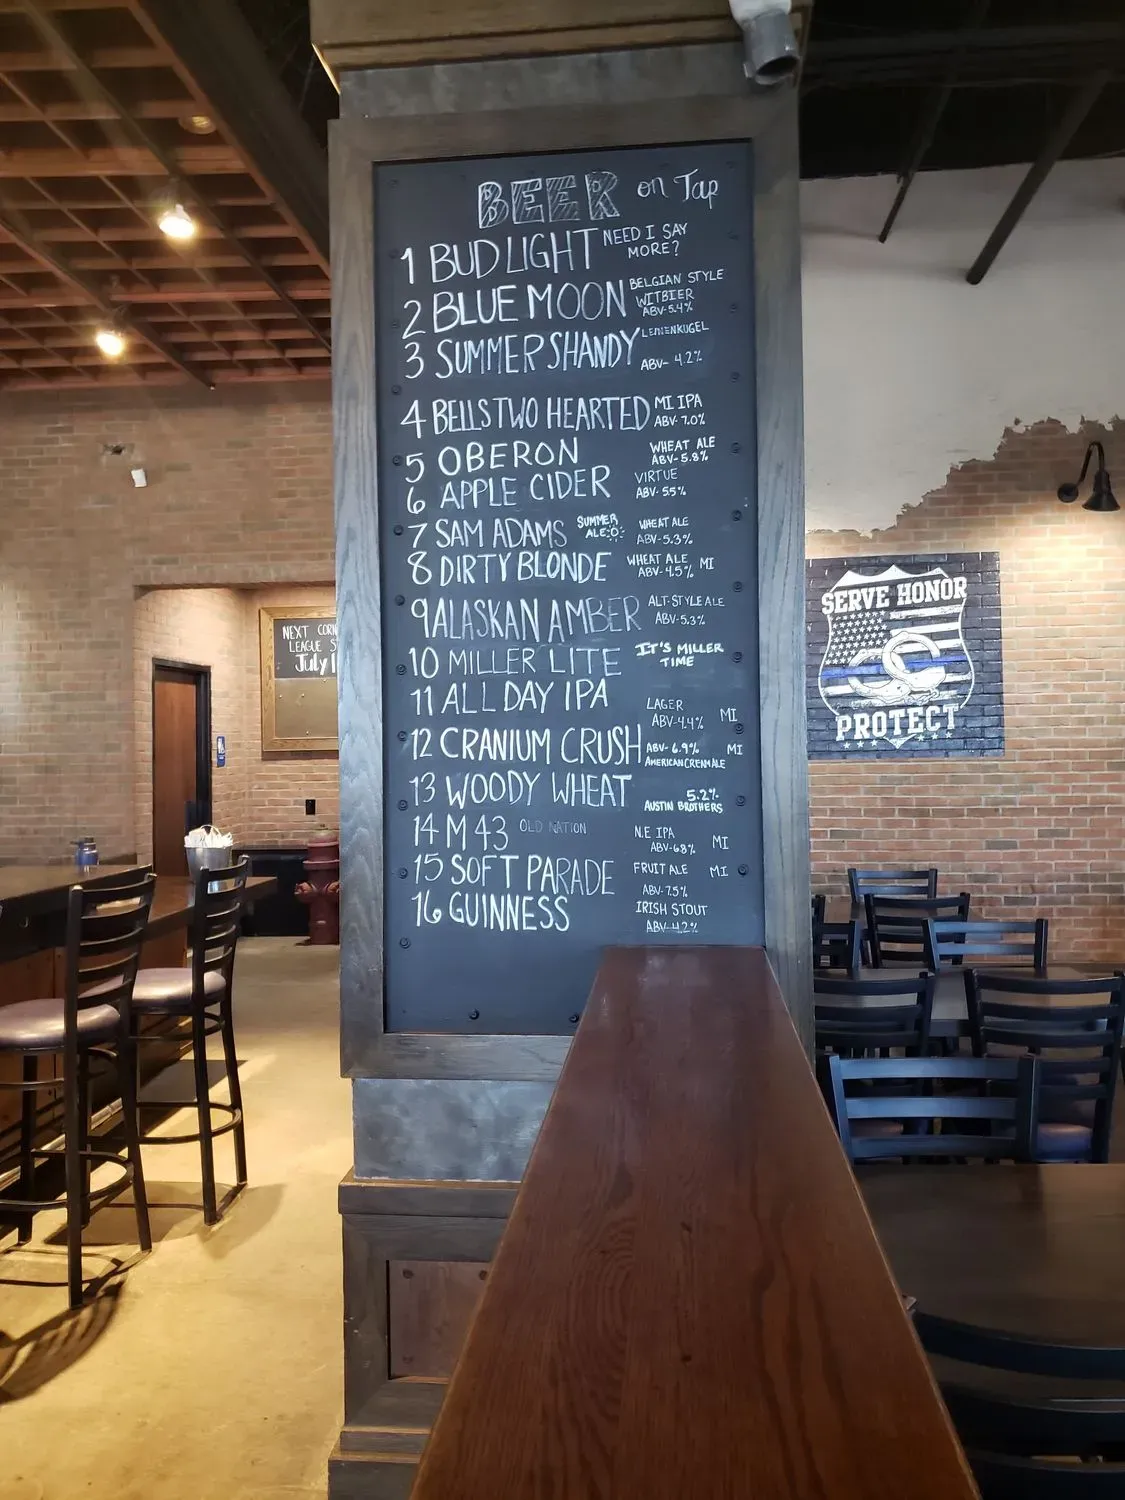 BEER on Tap
1 BUD LIGHT NEED I SAY MORE?
2 BLUE MOON BELGIAN STYLE WITBIER ABV-5.4%
3 SUMMER SHANDY LEINENKUGEL ABV- 4.2%
4 BELLS TWO HEARTED MI IPA ABV- 7.0%
5 OBERON WHEAT ALE ABV-5.8%
6 APPLE CIDER VIRTUE ABV- 55%
7 SAM ADAMS SUMMER ALE WHEAT ALE ABV-5.3%
8 DIRTY BLONDE WHEAT ALE ABV-4.5% MI
9 ALASKAN AMBER ALT-STYLE ALE ABV-5.3%
10 MILLER LITE IT'S MILLER TIME
11 ALL DAY IPA LAGER ABV-4.4% MI
12 CRANIUM CRUSH ABV- 6.9% MI AMERICAN CREAM ALE
13 WOODY WHEAT 5.2% AUSTIN BROTHERS
14 M 43 OLD NATION N.E IPA ABV-68% MI
15 SOFT PARADE FRUIT ALE MI ABV-7.5%
16 GUINNESS IRISH STOUT ABV-4.2%
NEXT CORN
LEAGUE S
July 1
SERVE HONOR
PROTECT